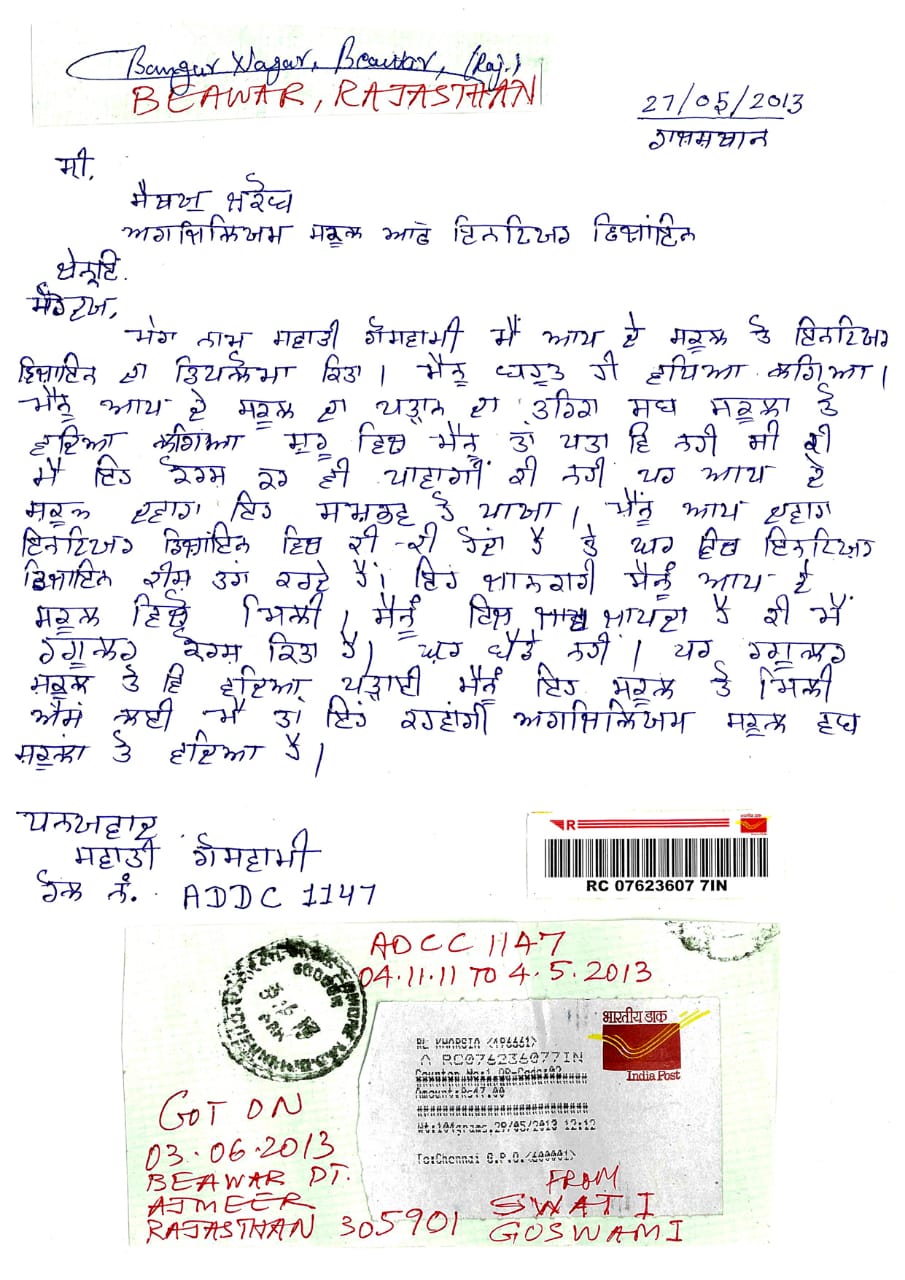 Bangur Nagar, Beawar, (Raj.)
BEAWAR, RAJASTHAN
27/05/2013
ਰਾਜਸਥਾਨ
ਸ੍ਰੀ.
ਆਫ ਇਨਟਿਯਰ ਡਿਜਾਂਇਨ
ਚੇਨੂਇ.
ਮੇਰਾ ਨਾਮ ਸਵਾਤੀ ਗੋਸਵਾਮੀ ਮੈਂ ਆਪ ਦੇ ਸਕੂਲ ਤੋ ਇਨਟਿਯਰ
ਡਿਜ਼ਾਇਨ ਦਾ ਡਿਪਲੋਮਾ ਕਿਤਾ। ਮੈਨੂ ਬਹੂਤ ਹੀ ਵਦਿਆ ਲਗਿਆ।
ਮੈਨੂੰ ਆਪ ਦੇ ਸਕੂਲ ਦਾ ਪੜ੍ਹਾਨ ਦਾ ਤਰਿਕਾ ਸਬ ਸਕੂਲਾ ਤੋ
ਵਦਿਆ ਲਗਿਆ ਸੂਰੂ ਵਿਚ ਮੈਨੂੰ ਤਾਂ ਪਤਾ ਵਿ ਨਹੀ ਸੀ ਕੀ
ਮੈ ਇਹ ਕੋਰਸ ਕਰ ਵੀ ਪਾਵਾਗੀਂ ਕੀ ਨਹੀ ਪਰ ਆਪ ਦੇ
ਸਕੂਲ ਦਵਾਰਾ ਇਹ ਹੋ ਪਾਯਾ। ਮੈਨੂੰ ਆਪ ਦਵਾਰਾ
ਇਨਟਿਯਰ ਡਿਜਾਂਇਨ ਵਿਚ ਕੀ-ਕੀ ਹੋਂਦਾ ਹੈ ਤੇ ਘਰ ਵਿਚ ਇਨਟਿਯਰ
ਡਿਜਾਇਨ ਕੀਸ ਤਰਾਂ ਕਰਦੇ ਹੈਂ। ਇਹ ਜਾਨਕਾਰੀ ਮੈਨੂੰ ਆਪ ਦੇ
ਸਕੂਲ ਵਿਚੋਂ ਮਿਲੀ। ਮੈਨੂੰ ਇਜ ਜਾਪਦਾ ਹੈ ਕੀ ਮੈਂ
ਰੇਗੂਲਰ ਕੋਰਸ ਕਿਤਾ ਹੈ। ਘਰ ਬੈਠੇ ਨਹੀਂ। ਪਰ ਰੇਗੂਲਰ
ਸਕੂਲ ਤੋ ਵਿ ਵਦਿਆ ਪੜ੍ਹਾਈ ਮੈਨੂੰ ਇਹ ਸਕੂਲ ਤੋ ਮਿਲੀ
ਐਸੇ ਲਈ ਮੈ ਤਾਂ ਇਹ ਕਹਵਾਂਗੀ ਅਗਜਿਲਿਯਮ ਸਕੂਲ ਸਬ
ਸਕੂਲਾਂ ਤੋ ਵਦਿਆ ਹੈ।
ਧਨਯਵਾਦ
ਸਵਾਤੀ ਗੋਸਵਾਮੀ
ਰੋਲ ਨੰ. ADDC 1147
R
RC 07623607 7IN
ADCC 1147
04.11.11 TO 4.5.2013
भारतीय डाक
India Post
RL KHARSIA <496661>
A RC076236077IN
Counter No:1,OP-Code:02
Amount:Rs47.00
Wt:104grams,29/05/2013 12:12
To:Chennai G.P.O.<600001>
GOT ON
03.06.2013
BEAWAR DT.
AJMEER
RAJASTHAN 305901
FROM
SWATI
GOSWAMI